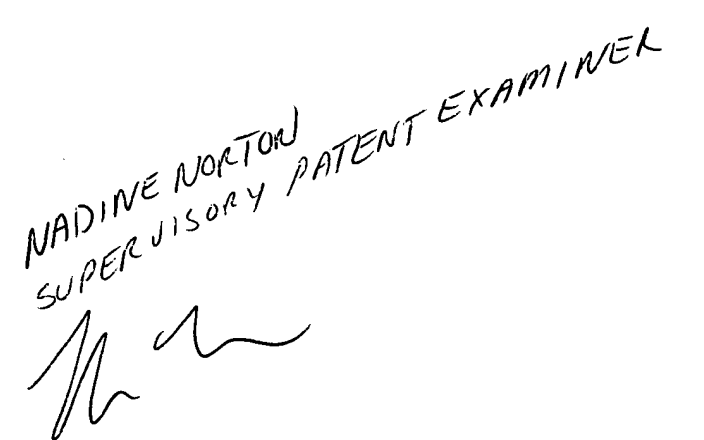 NADINE NORTON
SUPERVISORY PATENT EXAMINER